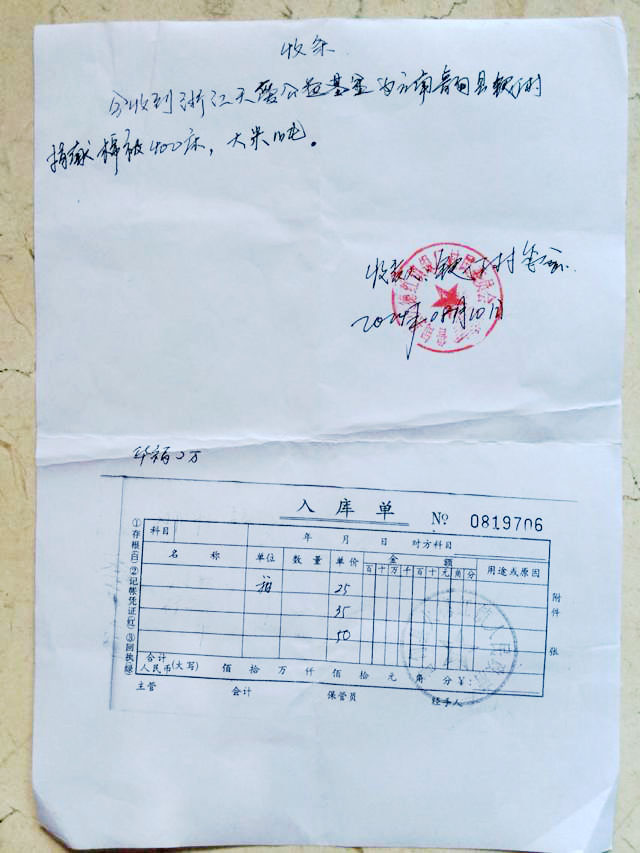 收条
今收到浙江天爱公益基金为云南鲁甸县
捐献棉被400床，大米10吨。
收款人
2014年08月10日
入库单 № 0819706
①存根(白)②记帐凭证(红)③回执绿
科目 年 月 日 对方科目
名 称 单位 数 量 单 价 金 额 用途或原因
百 十 万 千 百 十 元 角 分
25
35
50
附 件 张
合计
人民币(大写) 佰 拾 万 仟 佰 拾 元 角 分 ¥:
主管 会计 保管员 经手人